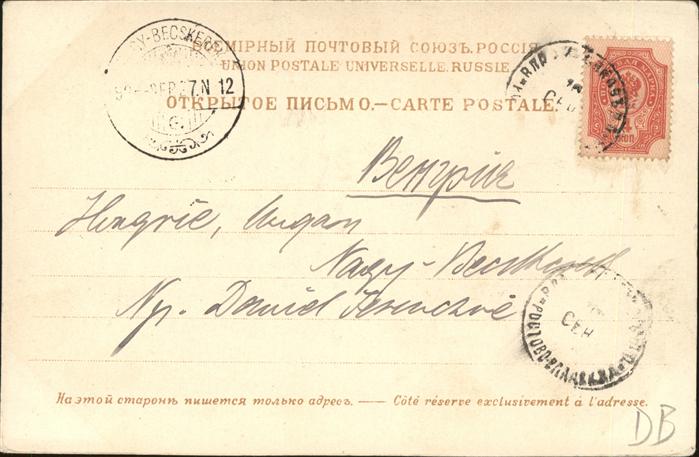 ВСЕМІРНЫЙ ПОЧТОВЫЙ СОЮЗЪ. РОССІЯ
UNION POSTALE UNIVERSELLE. RUSSIE
ОТКРЫТОЕ ПИСЬМО.—CARTE POSTALE
Y-BECSKER
SEP 27. N 12
СЕН
Венгрия
Hongrie, Ungarn
Nagy-Becskerek
Np. Daniel
СЕН
РОСТОВО-ВЛАДИКАВ
На этой сторонѣ пишется только адресъ. — Côté réserve exclusivement à l'adresse.
DB